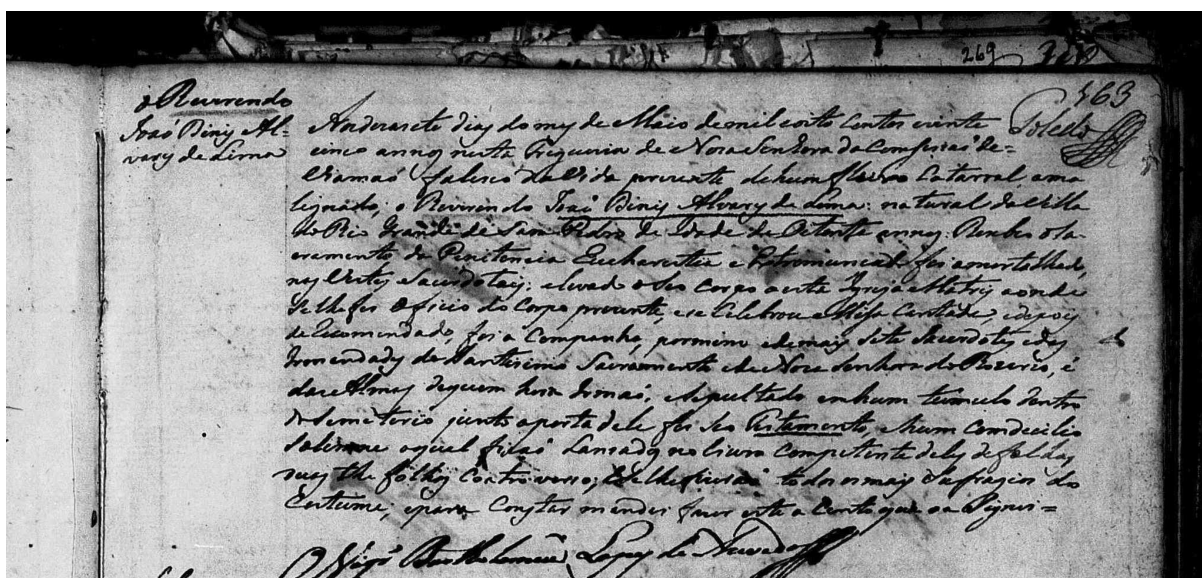 269
163
Toledo
o Reverendo
João Diniz Al-
vares de Lima
Aos dezasete dias do mez de Maio de mil oito centos e vinte
cinco annos nesta Freguezia de Nosa Senhora da Comseisaó de-
Viamaó faleseo da vida prezente de hum Catarral ama
lignado, o Reverendo Joaó Diniz Alvarez de Lima: natural da Villa
do Rio Grande de Sam Pedro de Idade de Oitenta annos. Resebeo o sa-
cramento da Penitencia Eucharestia e foi amortalhado,
nas Vestes Sacerdotais; e levado o Seo Corpo a esta Igreja Matriz aonde
se lhe fes Oficio do Corpo prezente, e se Celebrou Misa Cantada, e depois
de Encomendado, foi a Companhado, por mim e de mais Sete Sacerdotes e das
Irmandades do Santissimo Sacramento e de Nosa Senhora do Rozario, é
das Almas de quem hera Irmaó, e Sepultado em hum tumulo dentro
do Semeterio junto a porta dele fes seo Testamento e hum
o qual ficaó Lansados no livro Competente deles de folhas
the folhas verso; e se lhe fizeraó todos os mais Sufragios do
Custume, e para Constar mandei fazer este a sento que a Signei=
O Vigrº Bartholomeu Lopes de Azevedo